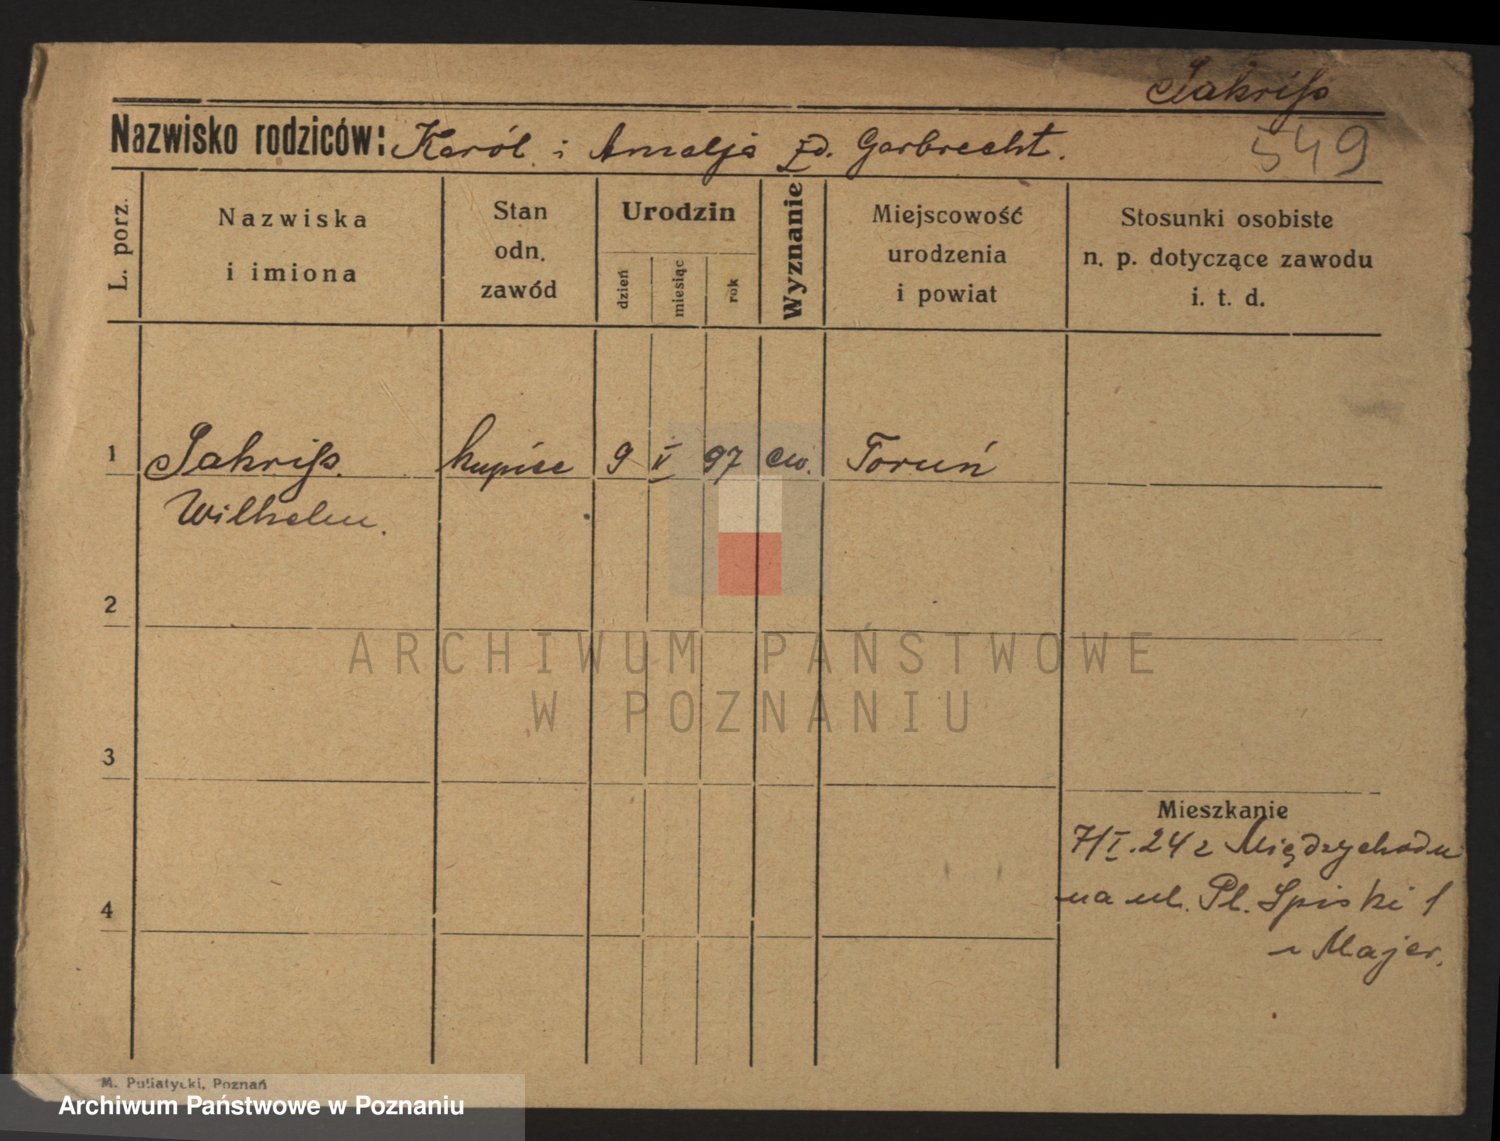 Jakriß
Nazwisko rodziców: Karól i Amalja zd. Garbrecht.
549
L. porz.
Nazwiska
i imiona
Stan
odn.
zawód
Urodzin
dzień
miesiąc
rok
Wyznanie
Miejscowość
urodzenia
i powiat
Stosunki osobiste
n. p. dotyczące zawodu
i. t. d.
1 Jakriß kupiec 9 V 97 ew. Toruń
Wilhelm.
2
ARCHIWUM PAŃSTWOWE
W POZNANIU
3
Mieszkanie
7/I.24 z Międzychodu
na ul. Pl. Spiski 1
4
u Majer.
M. Putiatycki, Poznań
Archiwum Państwowe w Poznaniu